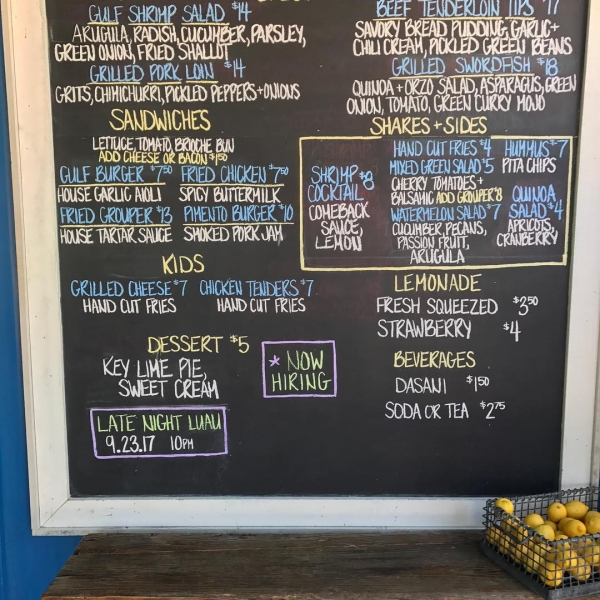 GULF SHRIMP SALAD $14
ARUGULA, RADISH, CUCUMBER, PARSLEY,
GREEN ONION, FRIED SHALLOT
GRILLED PORK LOIN $14
GRITS, CHIMICHURRI, PICKLED PEPPERS + ONIONS
SANDWICHES
LETTUCE, TOMATO, BRIOCHE BUN
ADD CHEESE OR BACON $1.50
GULF BURGER $7.50 FRIED CHICKEN $7.50
HOUSE GARLIC AIOLI SPICY BUTTERMILK
FRIED GROUPER $13 PIMENTO BURGER $10
HOUSE TARTAR SAUCE SMOKED PORK JAM
KIDS
GRILLED CHEESE $7 CHICKEN TENDERS $7
HAND CUT FRIES HAND CUT FRIES
DESSERT $5
KEY LIME PIE,
SWEET CREAM
* NOW
HIRING
LATE NIGHT LUAU
9.23.17 10PM
BEEF TENDERLOIN TIPS
SAVORY BREAD PUDDING, GARLIC +
CHILI CREAM, PICKLED GREEN BEANS
GRILLED SWORDFISH $18
QUINOA + ORZO SALAD, ASPARAGUS, GREEN
ONION, TOMATO, GREEN CURRY MOJO
SHARES + SIDES
SHRIMP $8
COCKTAIL
COMEBACK
SAUCE,
LEMON
HAND CUT FRIES $4
MIXED GREEN SALAD $5
CHERRY TOMATOES +
BALSAMIC ADD GROUPER $8
WATERMELON SALAD $7
CUCUMBER, PECANS,
PASSION FRUIT,
ARUGULA
HUMMUS $7
PITA CHIPS
QUINOA
SALAD $4
APRICOTS,
CRANBERRY
LEMONADE
FRESH SQUEEZED $3.50
STRAWBERRY $4
BEVERAGES
DASANI $1.50
SODA OR TEA $2.75